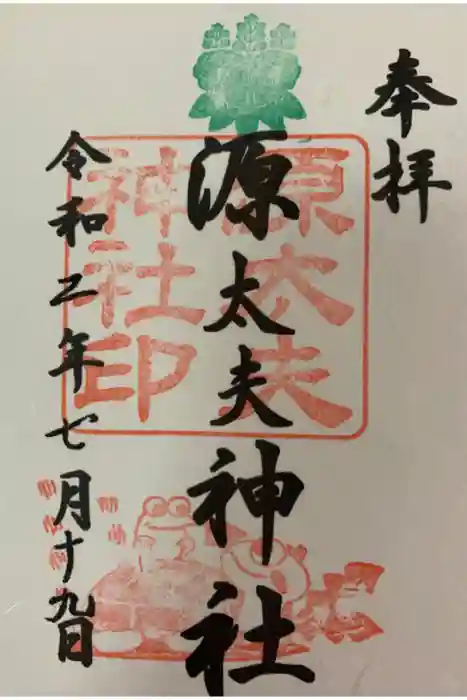 奉拝
源太夫神社
源太夫
神社印
令和二年七月十九日